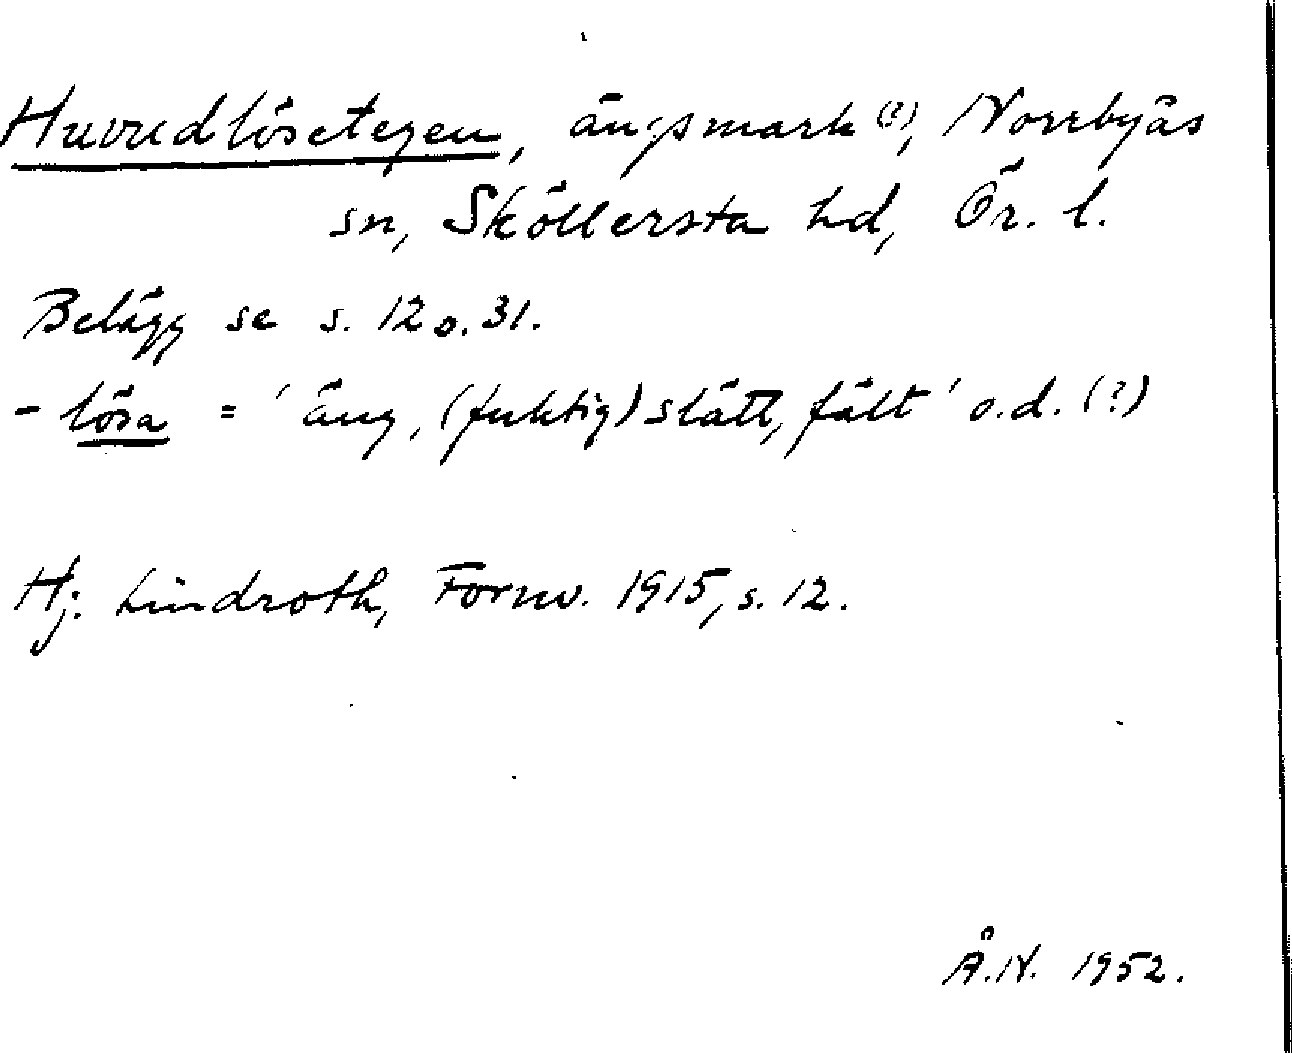 Huvudlösetegen, ängsmark (?), Norrbyås
sn, Sköllersta hd, Ör. l.
Belägg se s. 12 o. 31.
- lösa = 'äng, (fuktig) slätt, fält' o.d. (?)
Hj. Lindroth, Fornv. 1915, s. 12.
Å.N. 1952.